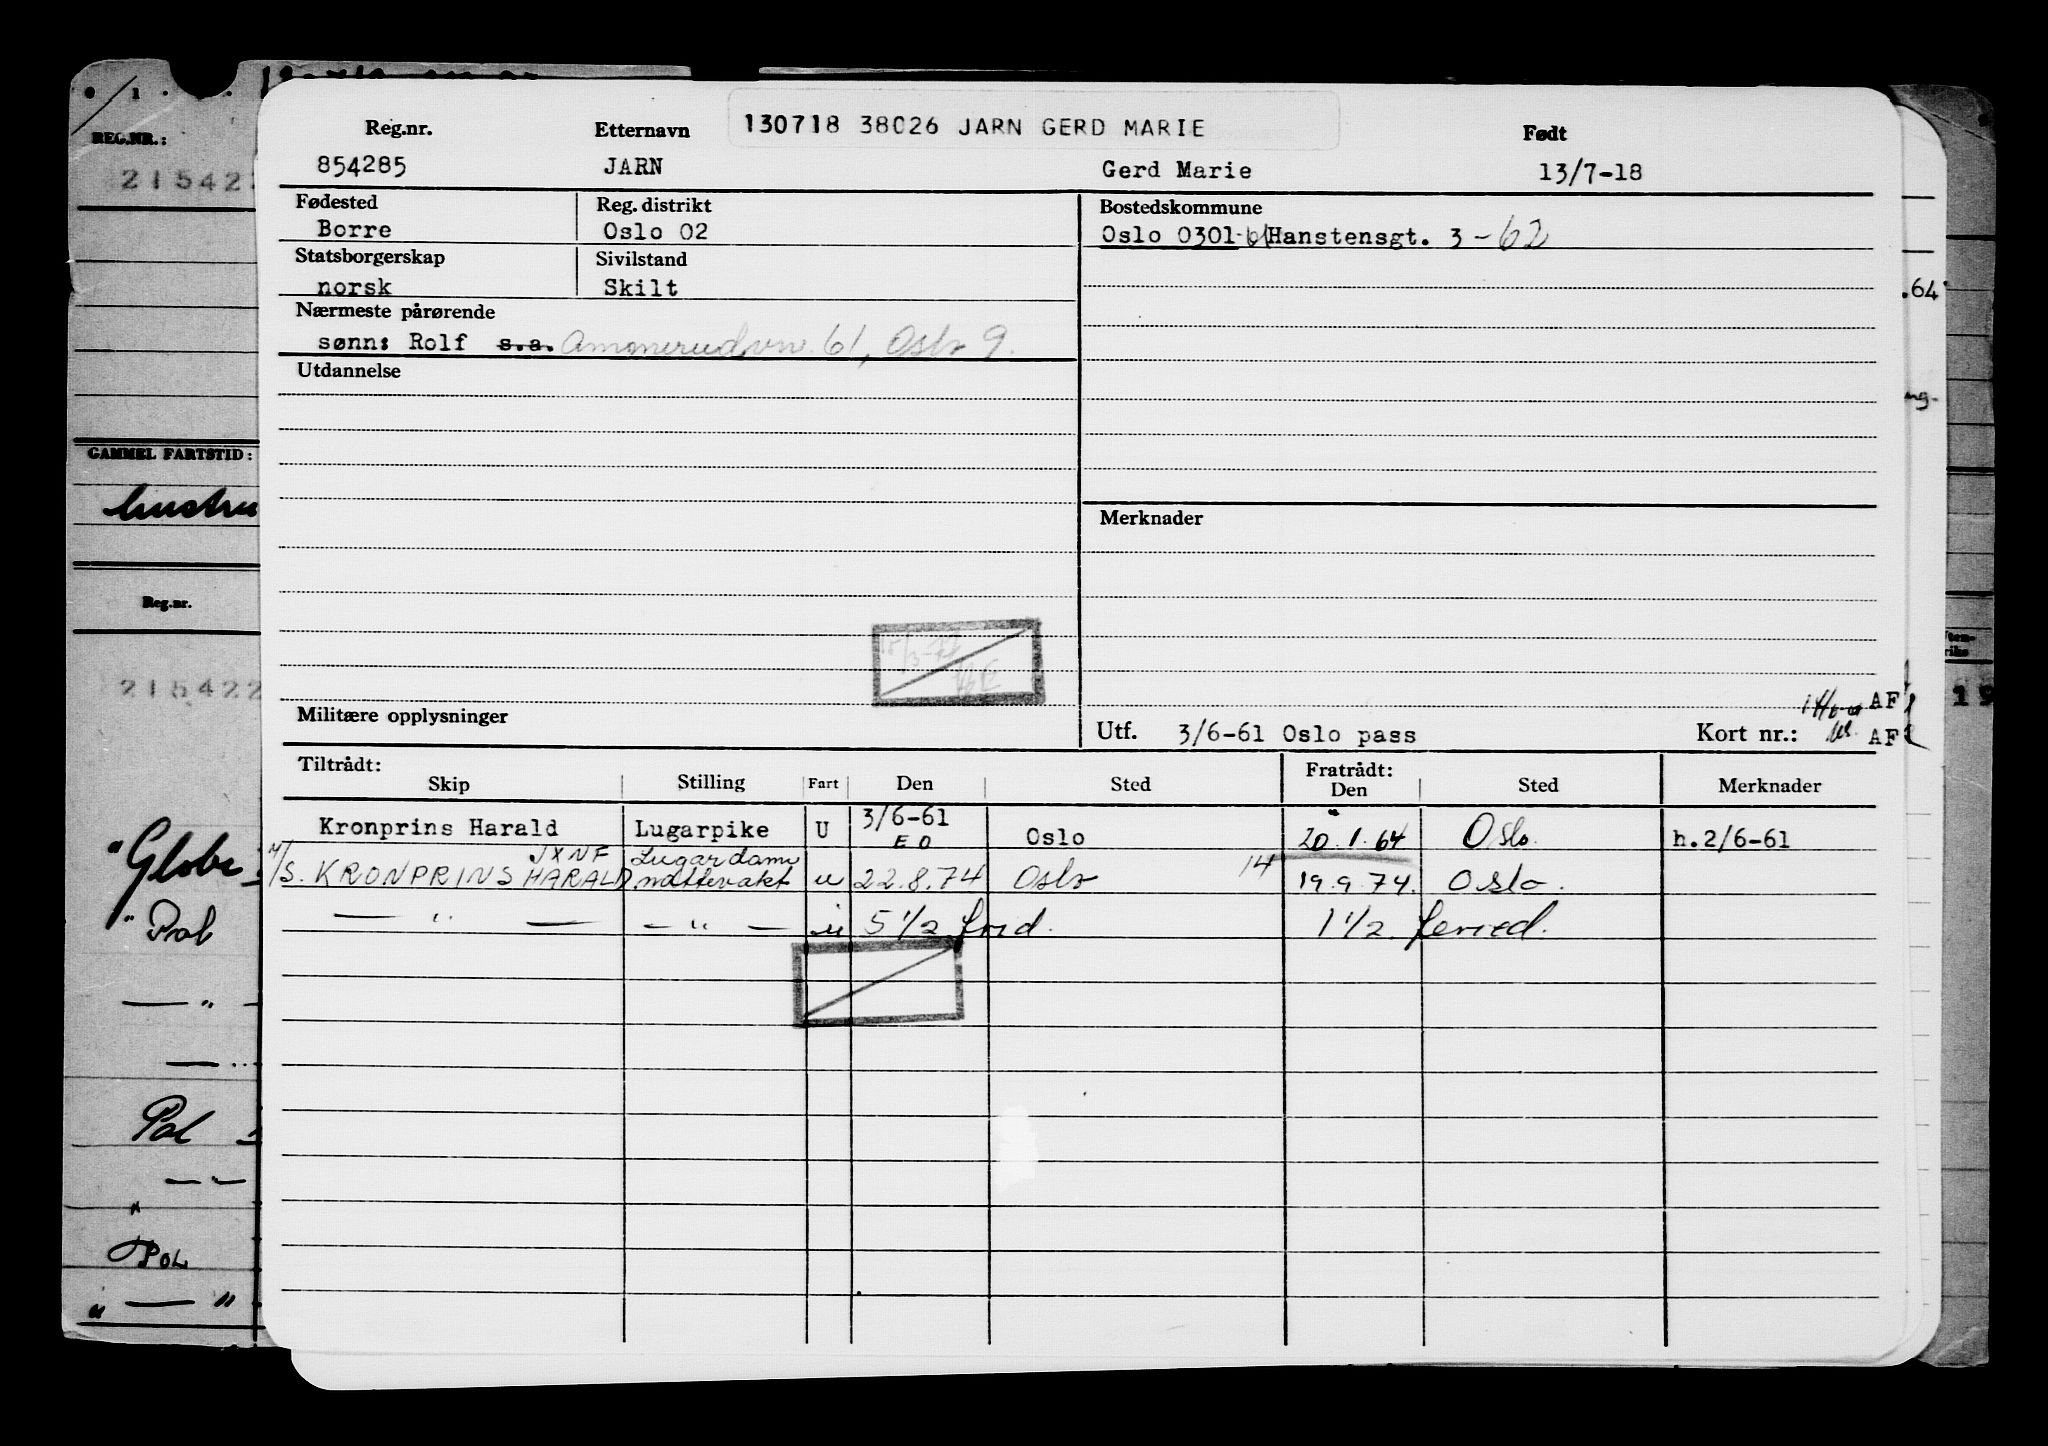 130718 38026 JARN GERD MARIE
Reg.nr. Etternavn Født
854285 JARN Gerd Marie 13/7-18
Fødested Reg. distrikt Bostedskommune
Borre Oslo 02 Oslo 0301-61 Hanstensgt. 3 -62
Statsborgerskap Sivilstand
norsk Skilt
Nærmeste pårørende
sønn: Rolf s.a. Ammerudvn. 61, Oslo 9.
Utdannelse
Merknader
Militære opplysninger
Utf. 3/6-61 Oslo pass Kort nr.:
AF
AF
Tiltrådt: Fratrådt:
Skip Stilling Fart Den Sted Den Sted Merknader
Kronprins Harald Lugarpike U 3/6-61 EO Oslo 20.1.64 Oslo. h.2/6-61
M/S. KRONPRINS HARALD JXNF Lugardame nattevakt u 22.8.74 Oslo 14 19.9.74. Oslo.
— " — — " — u 5 1/2 frid. 1 1/2 feried.
REG.NR.:
21542
GAMMEL FARTSTID:
hustru
Reg.nr.
215422
"Globe
" Pol
— "
—
Pol
— " —
"Pol
" — "
.64
ng-
19